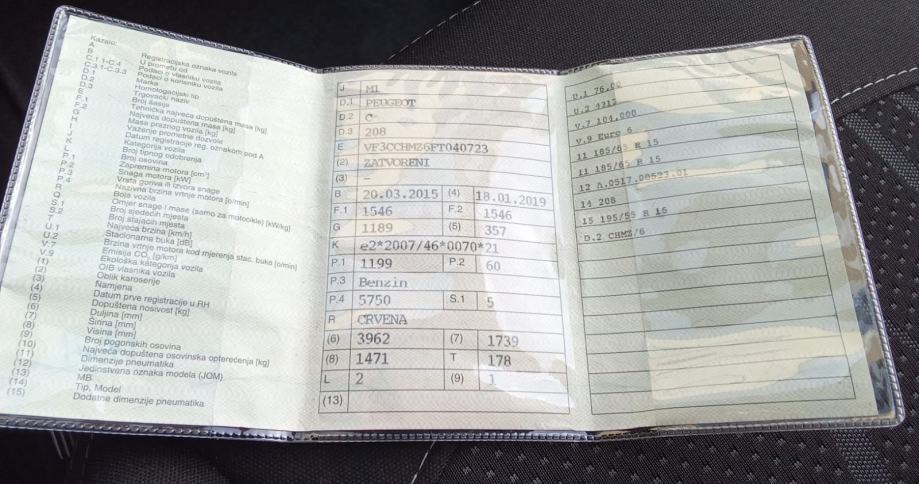 Kazalo:
A Registracijska oznaka vozila
B U prometu od
C.1.1-C.4 Podaci o vlasniku vozila
C.3.1-C.3.3 Podaci o korisniku vozila
D.1 Marka
D.2 Homologacijski tip
D.3 Trgovački naziv
E Broj šasije
F.1 Tehnička najveća dopuštena masa [kg]
F.2 Najveća dopuštena masa [kg]
G Masa praznog vozila [kg]
H Važenje prometne dozvole
Datum registracije reg. oznakom pod A
J Kategorija vozila
K Broj tipnog odobrenja
L Broj osovina
P.1 Zapremina motora [cm³]
P.2 Snaga motora [kW]
P.3 Vrsta goriva ili izvora snage
P.4 Nazivna brzina vrtnje motora [o/min]
R Boja vozila
Q Omjer snage i mase (samo za motocikle) [kW/kg]
S.1 Broj sjedećih mjesta
S.2 Broj stajaćih mjesta
T Najveća brzina [km/h]
U.1 Stacionarna buka [dB]
U.2 Brzina vrtnje motora kod mjerenja stac. buke [o/min]
V.7 Emisija CO₂ [g/km]
V.9 Ekološka kategorija vozila
(1) OIB vlasnika vozila
(2) Oblik karoserije
(3) Namjena
(4) Datum prve registracije u RH
(5) Dopuštena nosivost [kg]
(6) Duljina [mm]
(7) Širina [mm]
(8) Visina [mm]
(9) Broj pogonskih osovina
(10) Najveća dopuštena osovinska opterećenja [kg]
(11) Dimenzije pneumatika
(12) Jedinstvena oznaka modela (JOM)
(13) MB
(14) Tip, Model
(15) Dodatne dimenzije pneumatika
J M1
D.1 PEUGEOT
D.2 C
D.3 208
E VF3CCHMZ6FT040723
(2) ZATVORENI
(3) –
B 20.03.2015 (4) 18.01.2019
F.1 1546 F.2 1546
G 1189 (5) 357
K e2*2007/46*0070*21
P.1 1199 P.2 60
P.3 Benzin
P.4 5750 S.1 5
R CRVENA
(6) 3962 (7) 1739
(8) 1471 T 178
L 2 (9) 1
(13)
U.1 76,00
U.2 4312
V.7 104,000
V.9 Euro 6
11 185/65 R 15
11 185/65 R 15
12 A.0517.00523.01
14 208
15 195/55 R 16
D.2 CHMZ/6